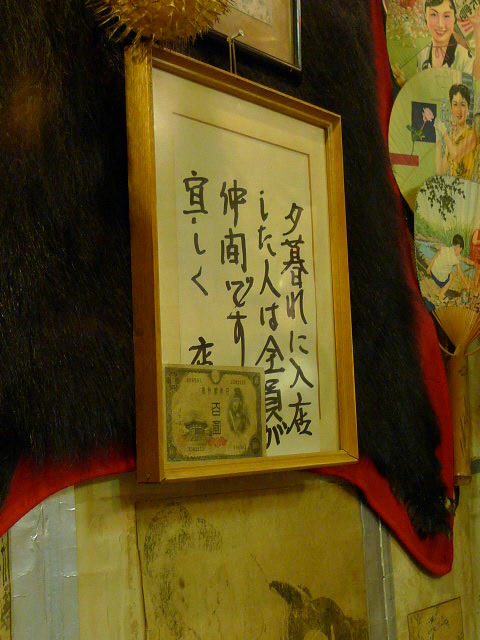 夕暮れに入店
した人は全員が
仲間です
宜しく
店
百圓